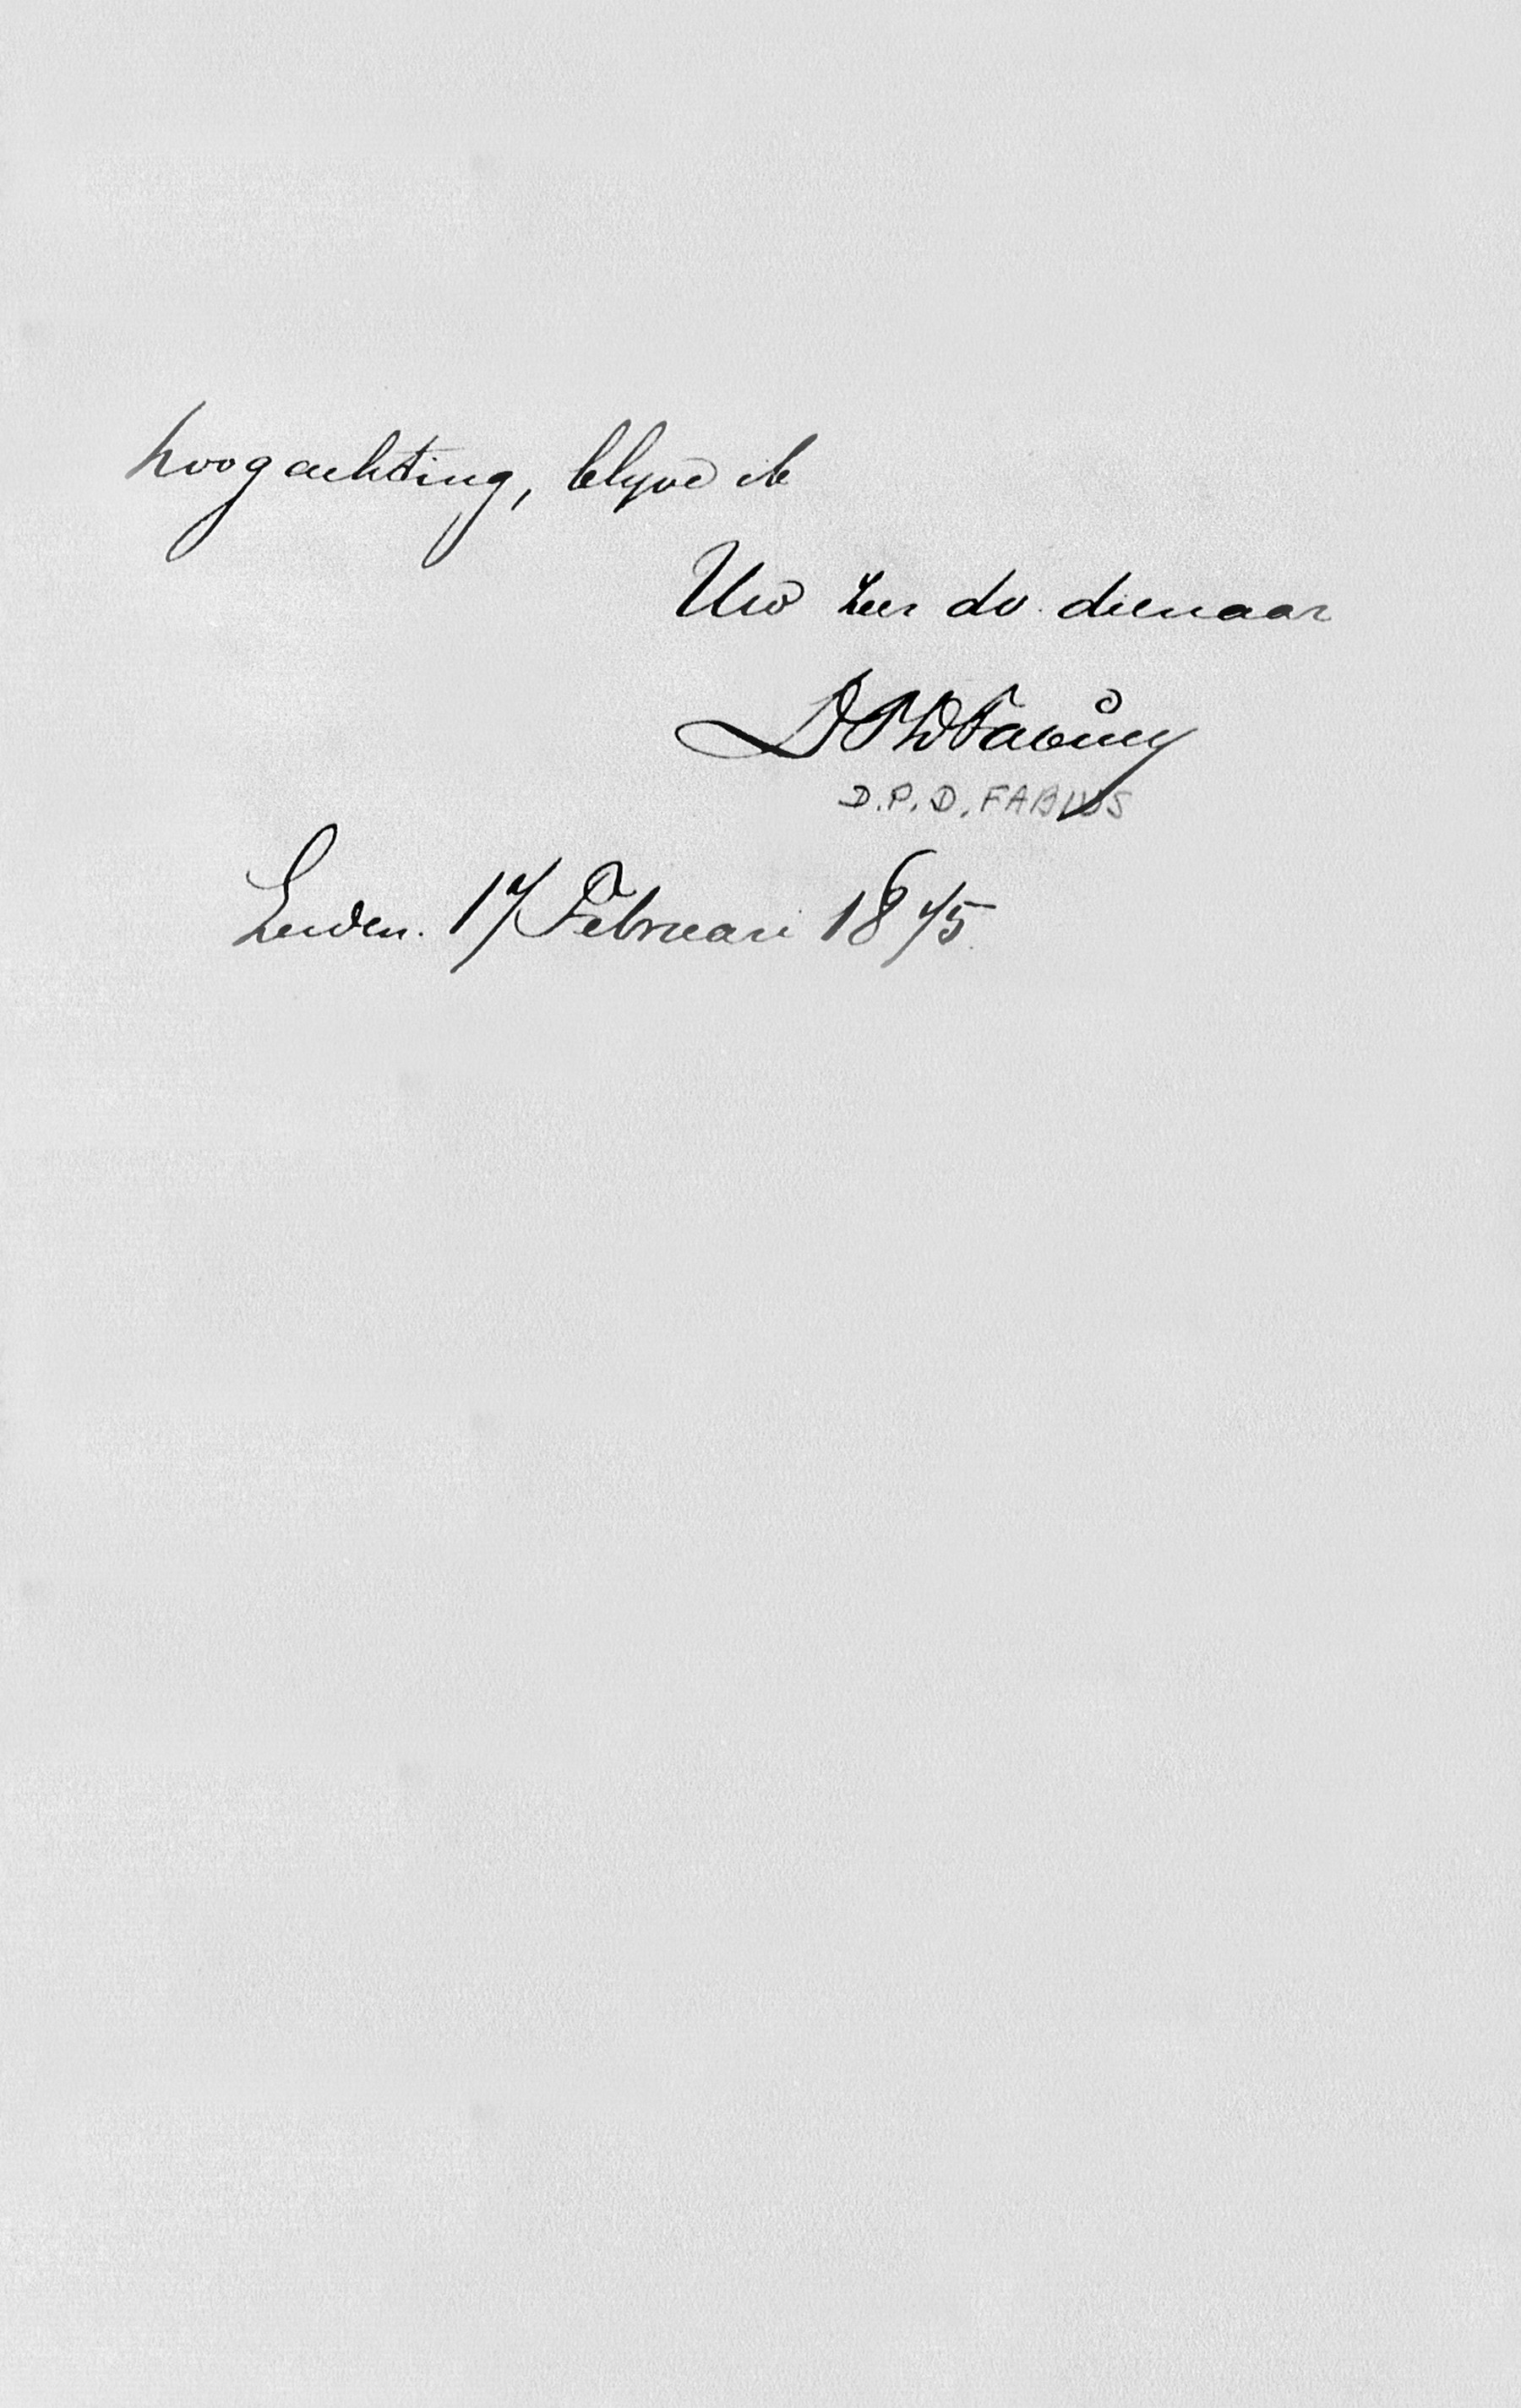 hoogachting, blijve ik
Uw zeer dv. dienaar
DPDFabius
D.P.D. FABIUS
Leiden. 17 Februari 1875.